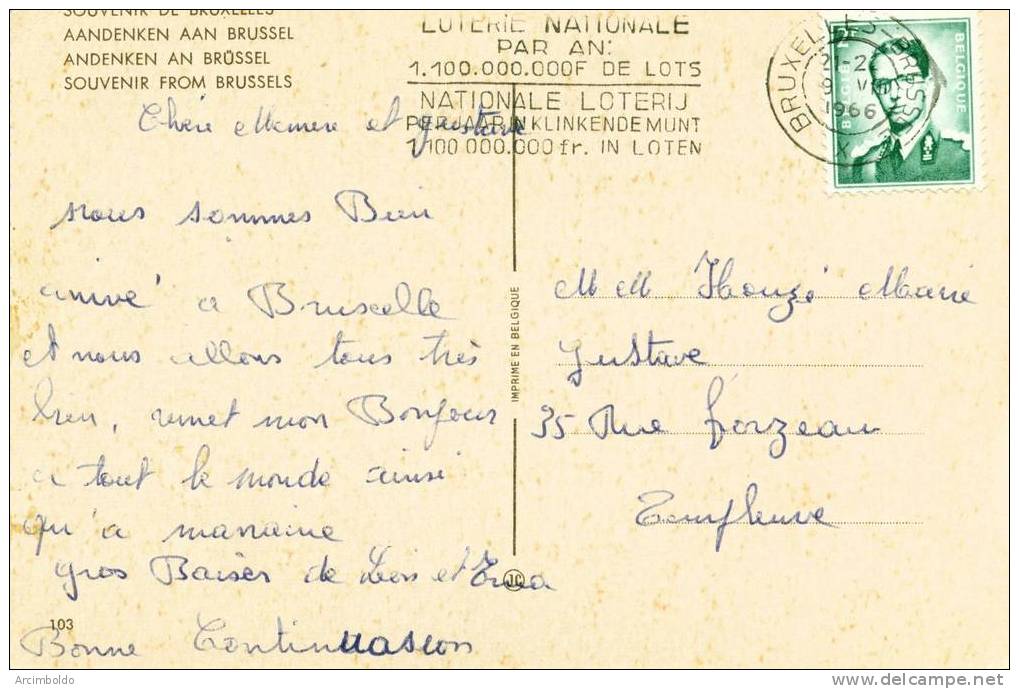 SOUVENIR DE BRUXELLES
AANDENKEN AAN BRUSSEL
ANDENKEN AN BRÜSSEL
SOUVENIR FROM BRUSSELS
LOTERIE NATIONALE
PAR AN:
1.100.000.000F DE LOTS
NATIONALE LOTERIJ
PER JAAR IN KLINKENDE MUNT
1.100.000.000 fr. IN LOTEN
BRUXELLES-BRUSSEL
21-2
1966
X
BELGIE
BELGIQUE
Chère Memere et Gustave
Nous sommes Bien
arrivé a Bruscelle
et nous allons tous très
bien, remet mon Bonjour
a tout le monde ainsi
qu'a marraine
gros Baiser de Leon et
Bonne Continuation
M M Houzé Marie
Gustave
35 Rue forzeau
Templeuve
IMPRIME EN BELGIQUE
JC
103
Arcimboldo
delcampe.net